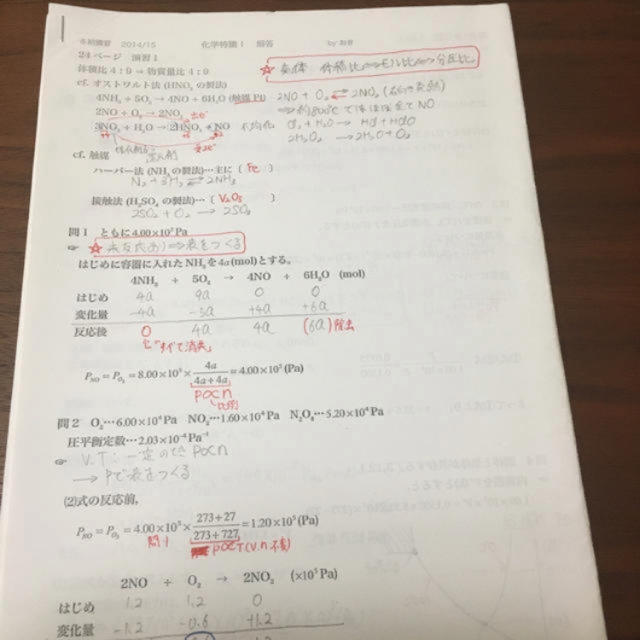 冬期講習 2014/15 化学特講Ⅰ 解答 by
24ページ 演習1
☆気体 体積比⇔モル比⇔分圧比
体積比 4:9 ⇒物質量比 4:9
cf. オストワルト法 (HNO₃ の製法)
4NH₃ + 5O₂ → 4NO + 6H₂O (触媒 Pt) 2NO + O₂ ⇄ 2NO₂
2NO + O₂ → 2NO₂ ⇒約800℃では ほぼ全てNO
3NO₂ + H₂O → 2HNO₃ + NO 不均化
2H₂O₂ → 2H₂O + O₂
cf. 触媒
ハーバー法 (NH₃ の製法)…主に〔 Fe 〕
N₂ + 3H₂ ⇄ 2NH₃
接触法 (H₂SO₄ の製法)…〔 V₂O₅ 〕
2SO₂ + O₂ → 2SO₃
問1 ともに 4.00×10⁵ Pa
☞ ☆ ⇒表をつくる
はじめに容器に入れた NH₃ を 4a (mol) とする。
4NH₃ + 5O₂ → 4NO + 6H₂O (mol)
はじめ 4a 9a 0 0
変化量 -4a -5a +4a +6a
反応後 0 4a 4a (6a) 除去
すべて消失
P_NO = P_O₂ = 8.00×10⁵ × 4a/(4a+4a) = 4.00×10⁵ (Pa)
P∝n
比例
問2 O₂…6.00×10⁴ Pa NO₂…1.60×10⁴ Pa N₂O₄…5.20×10⁴ Pa
圧平衡定数…2.03×10⁻⁴ Pa⁻¹
☞ V.T:一定のとき P∝n
→ Pで表をつくる
(2)式の反応前,
P_NO = P_O₂ = 4.00×10⁵ × (273+27)/(273+727) = 1.20×10⁵ (Pa)
問1 P∝T (V.n不変)
2NO + O₂ → 2NO₂ (×10⁵ Pa)
はじめ 1.2 1.2 0
変化量 -1.2 -0.6 +1.2